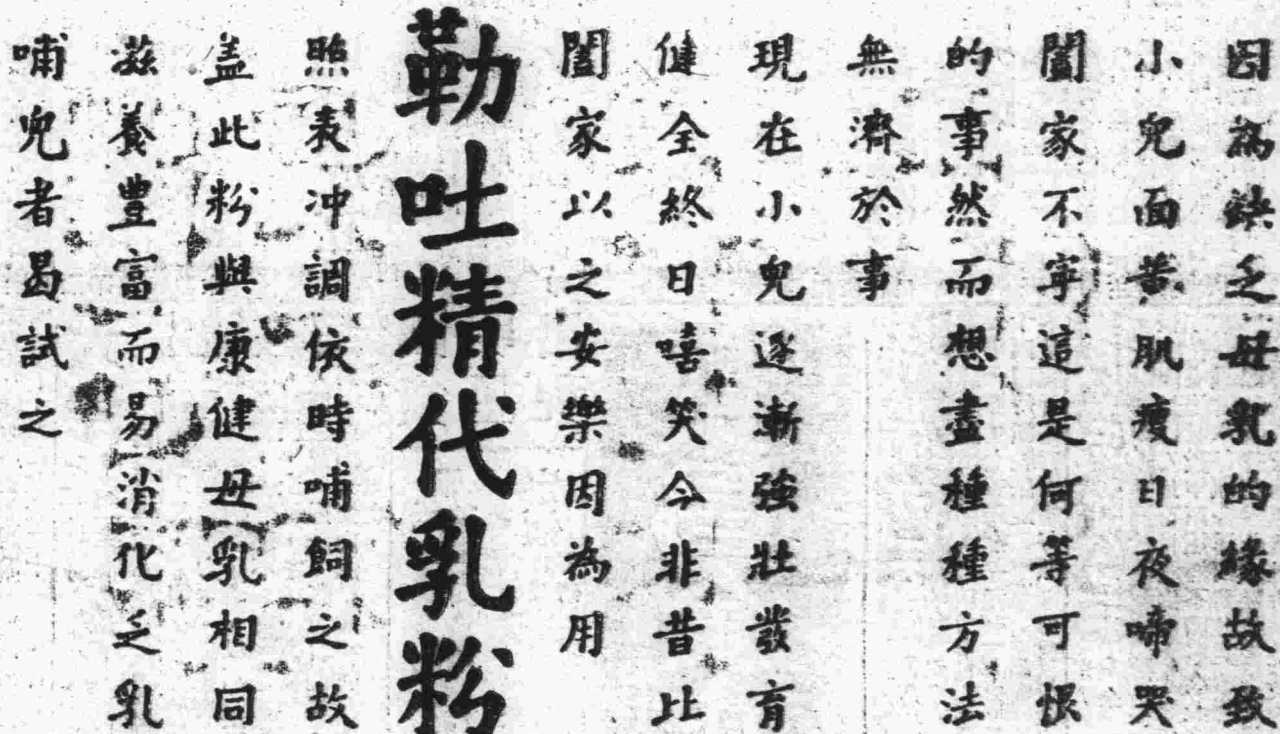 因為缺乏母乳的緣故致
小兒面黃肌瘦日夜啼哭
闔家不寧這是何等可恨
的事然而想盡種種方法
無濟於事
現在小兒逐漸強壯發育
健全終日嘻笑今非昔比
闔家以之安樂因為用
勒吐精代乳粉
照表沖調依時哺飼之故
盖此粉與康健母乳相同
滋養豊富而易消化乏乳
哺兒者曷試之